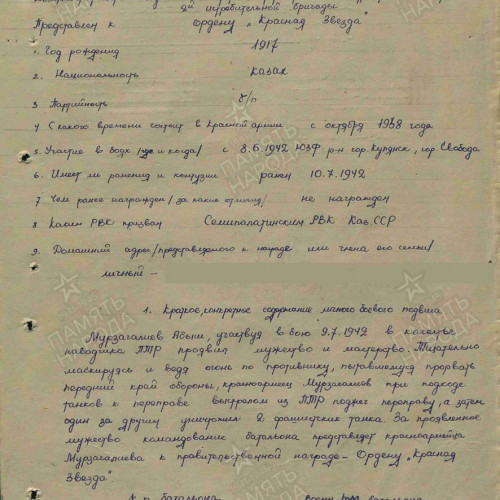 2й истребительной бригады
Представлен к Ордену „Красная Звезда"
1. Год рождения 1917
2. Национальность казак
3 Партийность б/п
4 С какого времени состоит в Красной армии с октября 1938 года
5. Участие в боях /где и когда/ с 8.6.1942 ЮЗФ р-н гор. Купянск, гор. Свобода
6. Имеет ли ранения и контузии ранен 10.7.1942
7 Чем ранее награжден /за какие отличия/ не награжден
8 Каким РВК призван Семипалатинским РВК Каз.ССР
9. Домашний адрес /представляемого к награде или члена его семьи/
личный -
1. Краткое, конкретное содержание личного боевого подвига
Мурзагалиев Абыш, участвуя в бою 9.7.1942 в качестве
наводчика ПТР проявил мужество и мастерство. Тщательно
маскируясь и ведя огонь по противнику, пытавшемуся прорвать
передний край обороны, красноармеец Мурзагалиев при подходе
танков к переправе выстрелом из ПТР поджег переправу, а затем
один за другим уничтожил 2 фашистских танка. За проявленное
мужество командование батальона представляет красноармейца
Мурзагалиева к правительственной награде - Ордену „Красная
Звезда"
батальона Военком батальона
ПАМЯТЬ НАРОДА
ПАМЯТЬ НАРОДА
ПАМЯТЬ НАРОДА